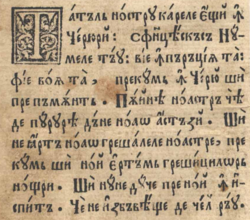 Татъль ностру кареле єщи ꙟ
черюри: сфинцѣскъсе Ну
меле тъу: віе ꙟпъръціѧ та
фіе воѧ та, прекумь ꙟ черю ши
пре пъмѫнть. Пѫинѣ ноастръ чѣ
де пуруре дъне ноаѡ астъзи. Ши
не ꙗртъ ноаѡ грешалеле ноастре, пре
кумь ши ной єртъмь грешицилѡрь
нощри. Ши нуне дуче пре ной ꙟ и
спить. Че не избъвѣще де чел ръу